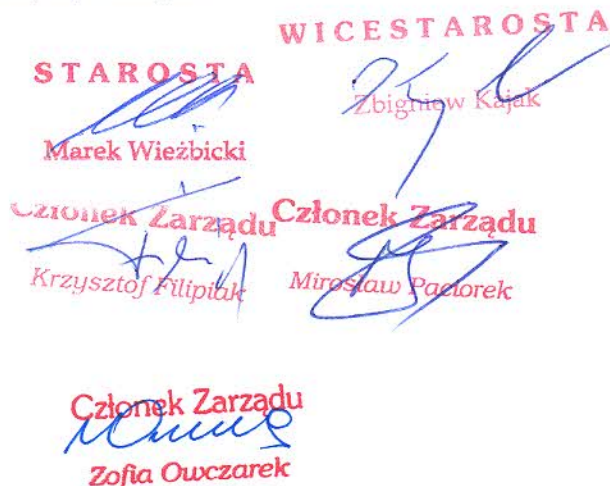 WICESTAROSTA
STAROSTA
Zbigniew Kajak
Marek Wieżbicki
Członek Zarządu Członek Zarządu
Krzysztof Filipiak Mirosław Paciorek
Członek Zarządu
Zofia Owczarek